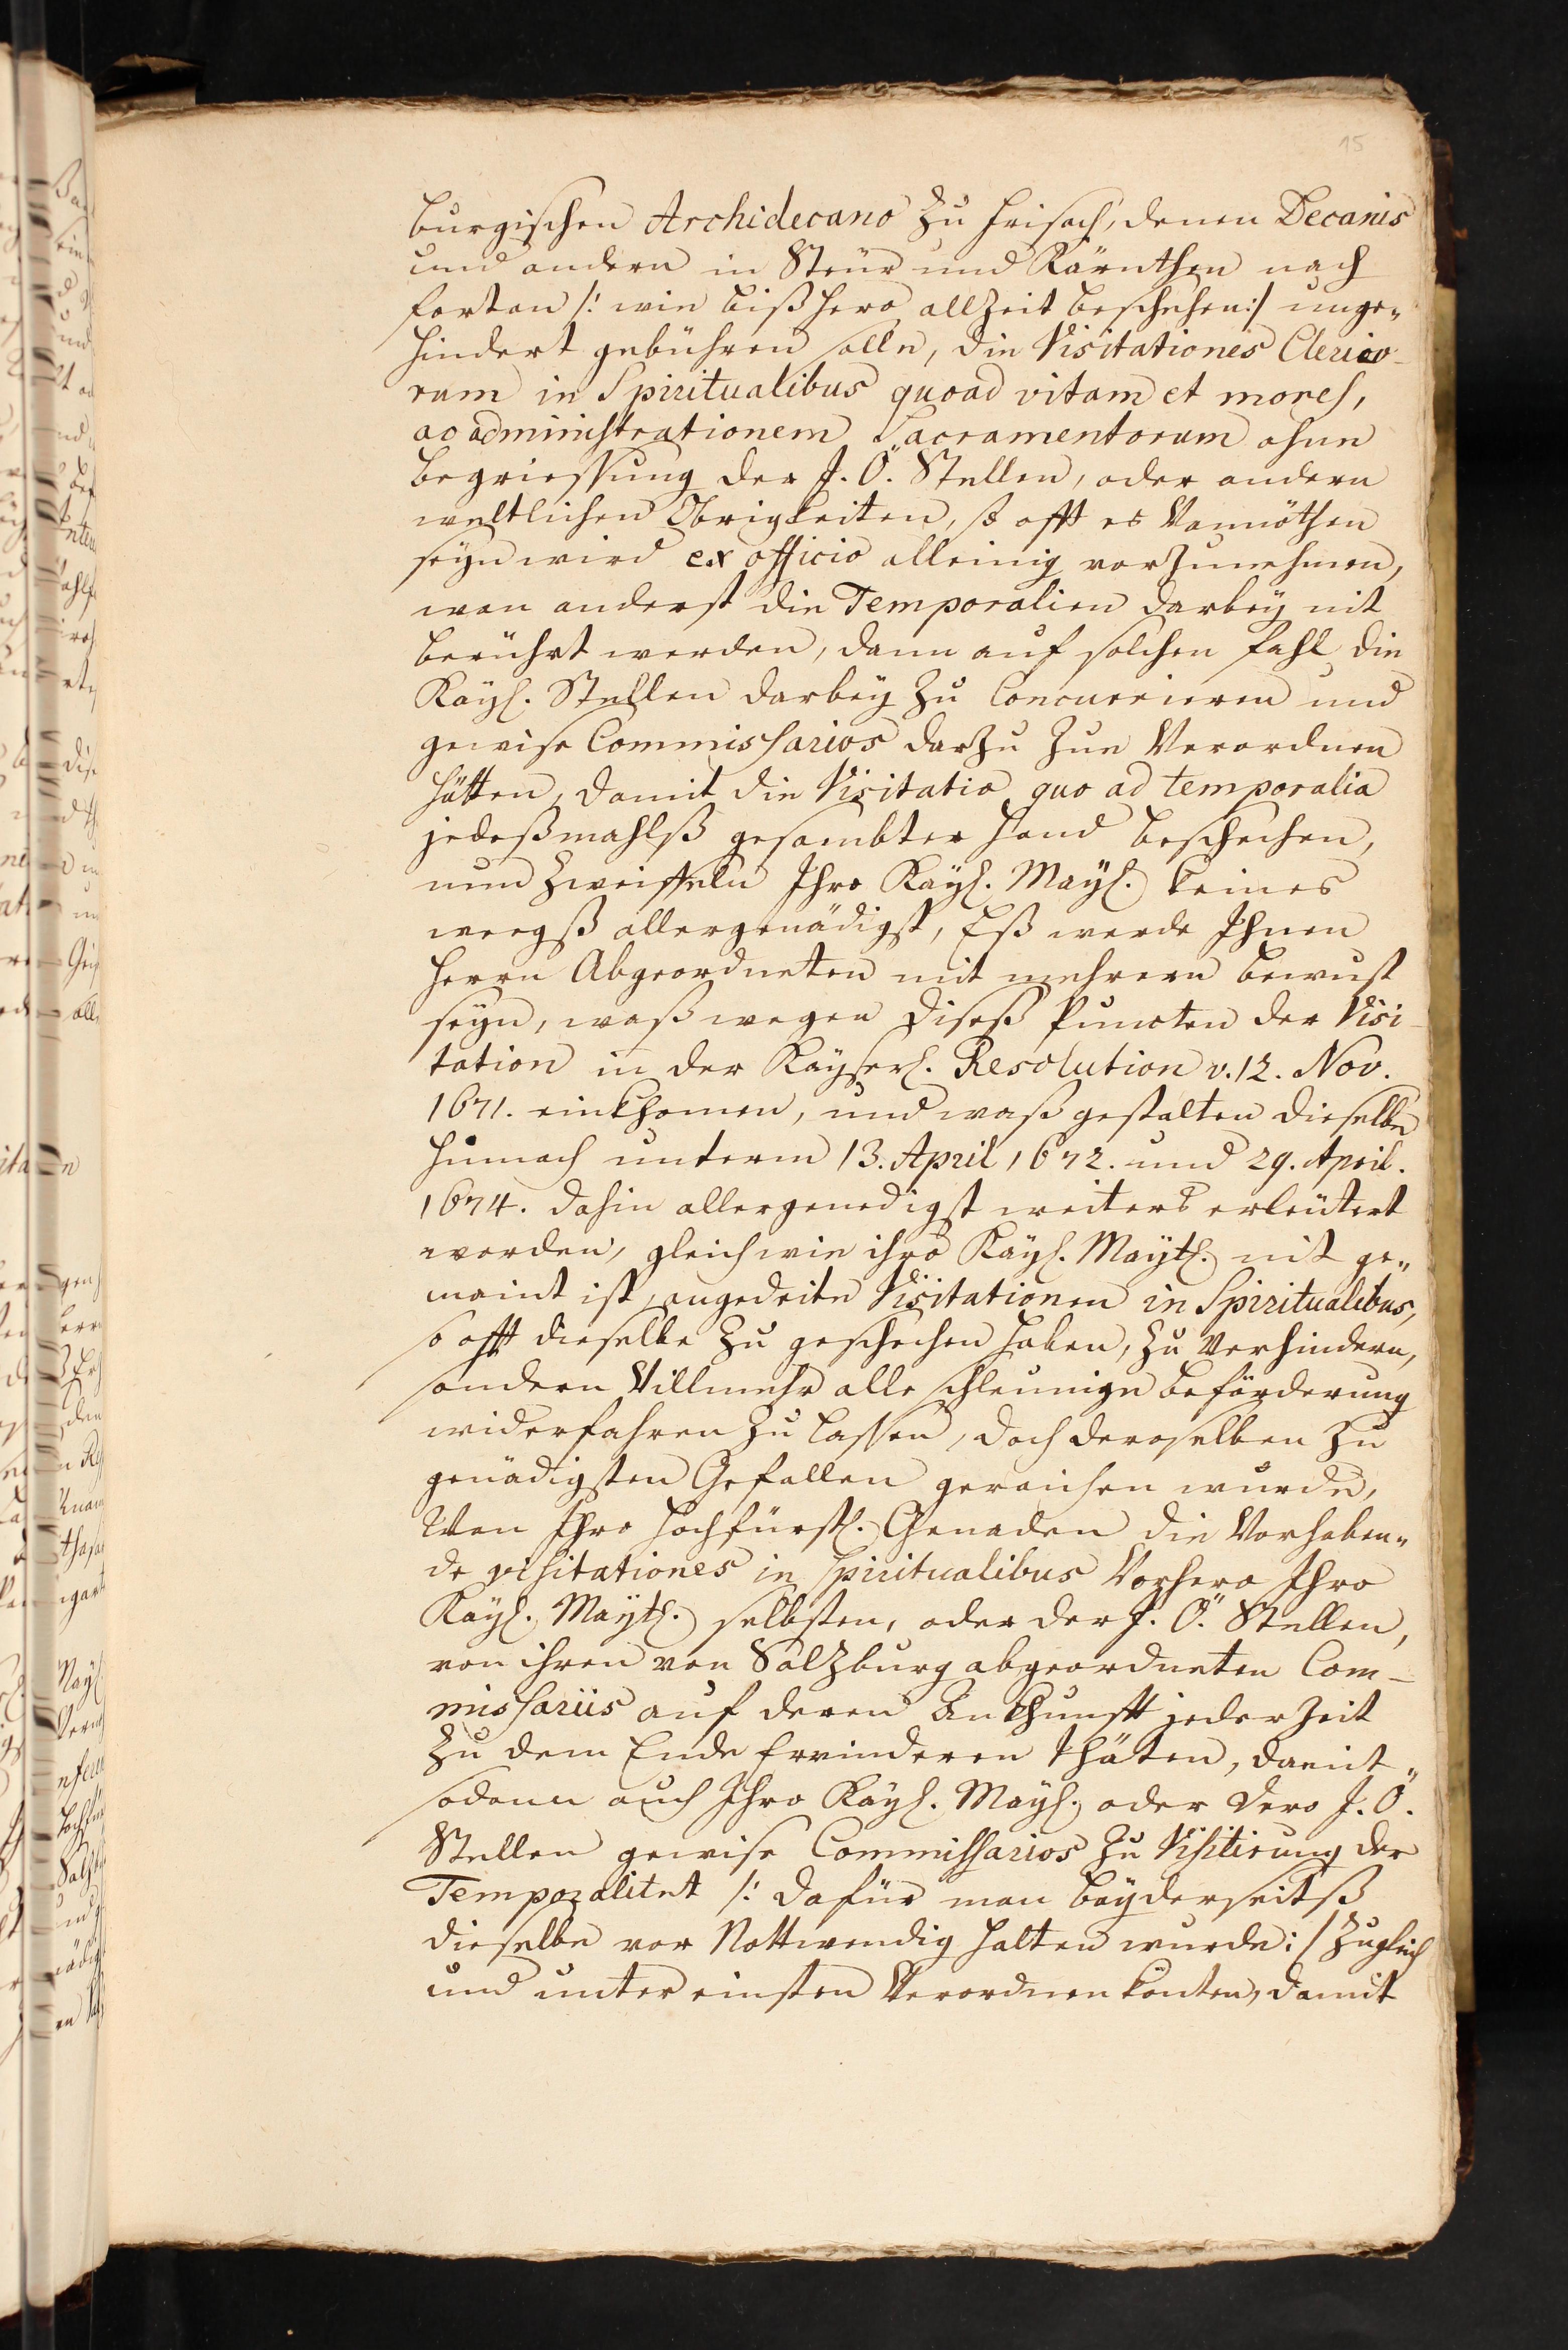 15
burgischen Archidecano zu Frisach, denen Decanis
und andern in Steür und Kärnthen nach
fortan /: wie bißhero allzeit beschehen :/ unge„
hindert gebühren solle, die Visitationes Clerico-
rum in Spiritualibus quoad vitam et mores,
ac administrationem Sacramentorum ohne
begriessung der J. Ö. Stellen, oder andern
weltlichen Obrigkeiten, so offt es Vonnöthen
seyn wird ex officio alleinig vorzunehmen,
wan anderst die Temporalien darbey nit
berührt werden, dann auf solchen fahl die
Kayl. Stellen darbey zu Concurrieren und
gewise Commissarios darzu zue Verordnen
hätten, damit die Visitatio quo ad temporalia
jedeßmahlß gesambter hand beschehen,
nun zweiffeln Ihro Kayl. Mayl. keines
weegß allergnädigst, Eß werde Ihnen
Herrn Abgeordneten mit mehrern bewust
seyn, waß wegen dises Puncten der Visi-
tation in der Kayserl. Resolution v. 12. Nov.
1671. einkhomen, und waß gestalten dieselbe
hinnach unterm 13. April 1672. und 29. April.
1674. dahin allergenedigst weiters erleütert
worden, gleichwie ihro Kayl. Maytl. nit ge„
maint ist, angedeite Visitationen in Spiritualibus,
so offt dieselbe zu geschehen haben, zu Verhindern,
sondern Villmehr alle schleunige beförderung
widerfahren zu lassen, doch deroselben zu
gnädigsten Gefallen geraichen wurde,
Wan Ihro hochfürstl. Genaden die Vorhaben„
de visitationes in spiritualibus Vorhero Ihro
Kayl. Maytl. selbsten, oder der J. Ö. Stellen,
von ihren von Salzburg abgeordneten Com-
missariis auf deren Ankhunfft jederzeit
zu dem Ende Erinderen thäten, damit
sodann auch Ihro Kayl. Mayl. oder dero J. Ö.
Stellen gewise Commissarios zu Visitirung der
Temporalitet /: dafür man beyderseitß
dieselbe vor Nottwendig halten wurde :/ zugleich
und unter einsten Verordnen könten, damit